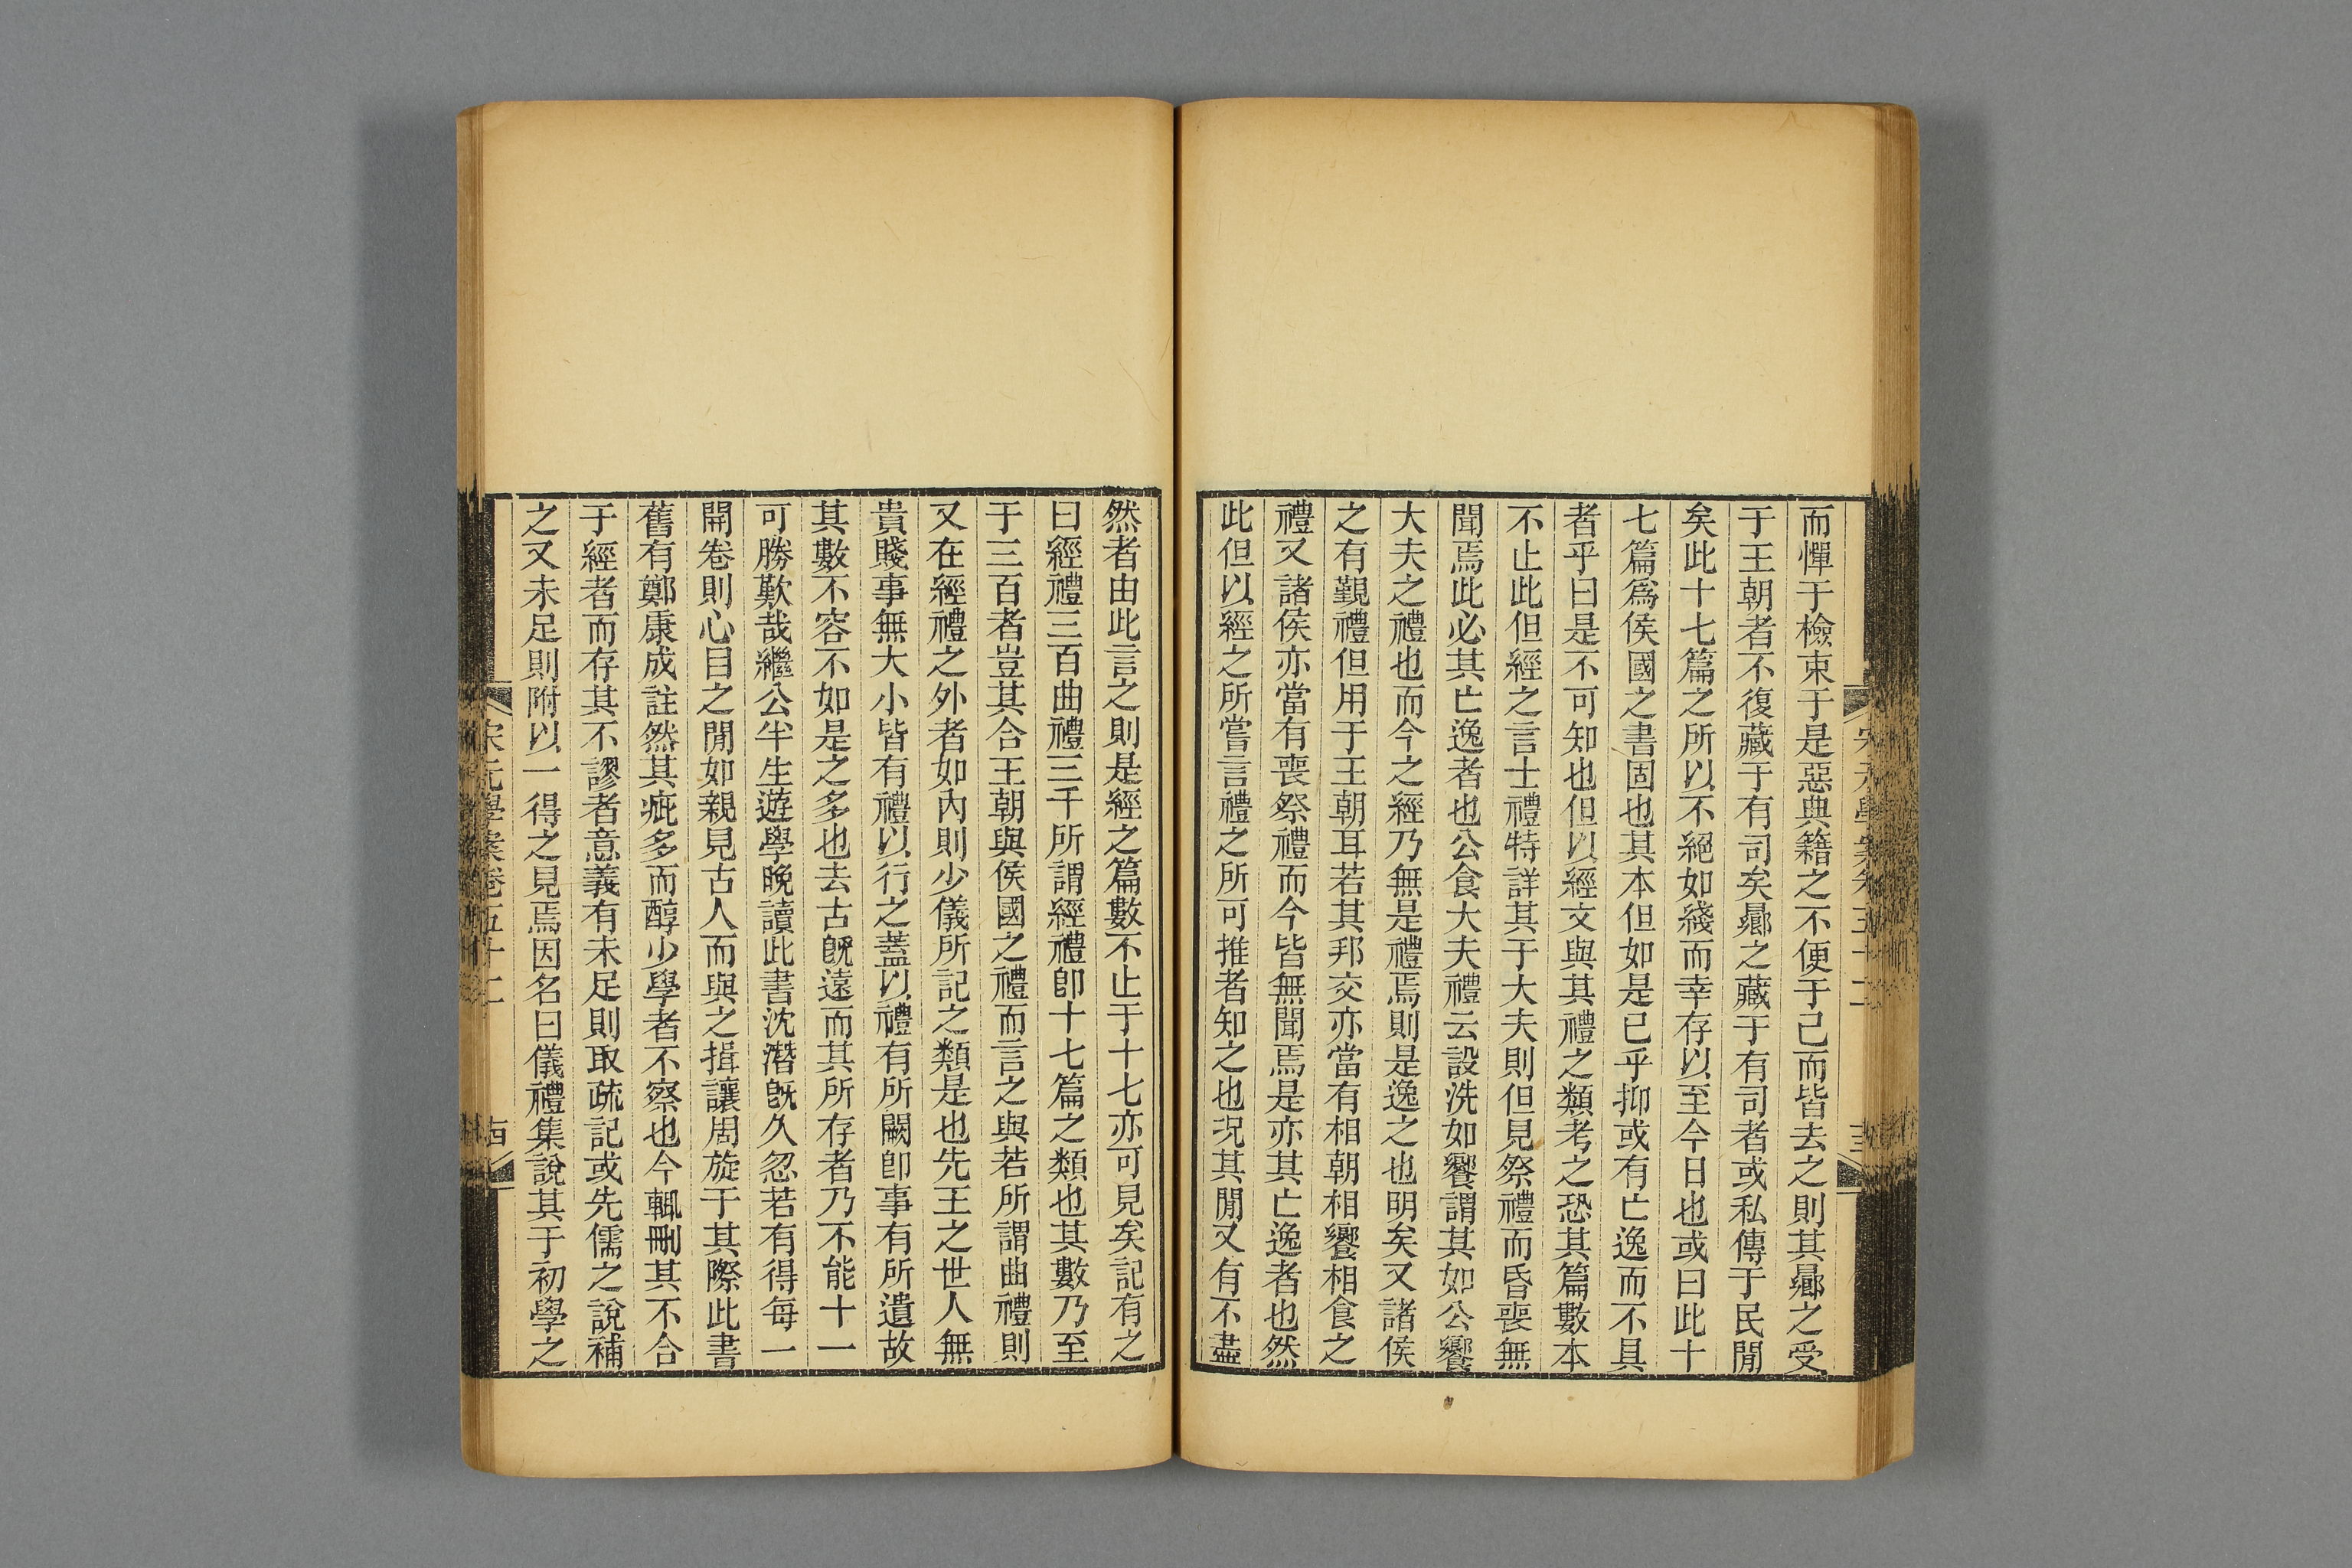 而憚于檢束于是惡典籍之不便于己而皆去之則其曏之受
于王朝者不復藏于有司矣曏之藏于有司者或私傳于民閒
矣此十七篇之所以不絕如綫而幸存以至今日也或曰此十
七篇爲侯國之書固也其本但如是已乎抑或有亡逸而不具
者乎曰是不可知也但以經文與其禮之類考之恐其篇數本
不止此但經之言士禮特詳其于大夫則但見祭禮而昏喪無
聞焉此必其亡逸者也公食大夫禮云設洗如饗謂其如公饗
大夫之禮也而今之經乃無是禮焉則是逸之也明矣又諸侯
之有覲禮但用于王朝耳若其邦交亦當有相朝相饗相食之
禮又諸侯亦當有喪祭禮而今皆無聞焉是亦其亡逸者也然
此但以經之所嘗言禮之所可推者知之也況其閒又有不盡
然者由此言之則是經之篇數不止于十七亦可見矣記有之
曰經禮三百曲禮三千所謂經禮卽十七篇之類也其數乃至
于三百者豈其合王朝與侯國之禮而言之與若所謂曲禮則
又在經禮之外者如內則少儀所記之類是也先王之世人無
貴賤事無大小皆有禮以行之蓋以禮有所闕卽事有所遺故
其數不容不如是之多也去古旣遠而其所存者乃不能十一
可勝歎哉繼公半生遊學晚讀此書沈潛旣久忽若有得每一
開卷則心目之閒如親見古人而與之揖讓周旋于其際此書
舊有鄭康成註然其疵多而醇少學者不察也今輒刪其不合
于經者而存其不謬者意義有未足則取疏記或先儒之說補
之又未足則附以一得之見焉因名曰儀禮集說其于初學之
宋元學案卷五十二